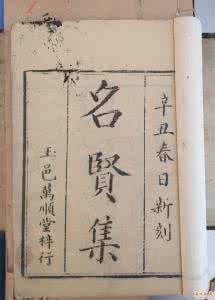 辛丑春日新刻
名賢集
玉邑萬順堂梓行